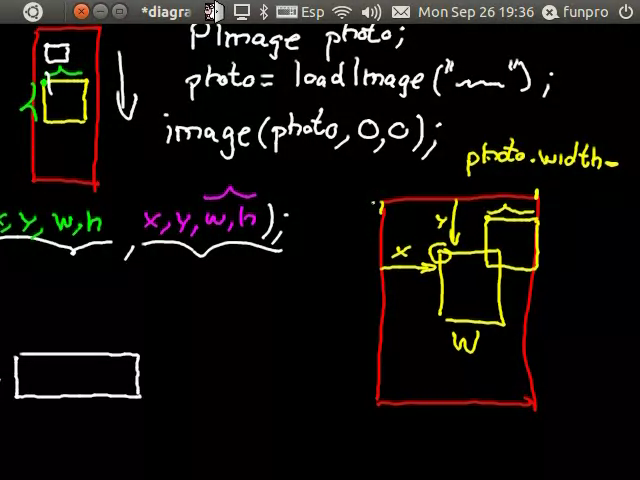 *diagra Esp Mon Sep 26 19:36 funpro
PImage photo;
photo= loadImage("~~");
image(photo,0,0);
photo.width-
Y, w,h , x,y,w,h);
Y
x
W